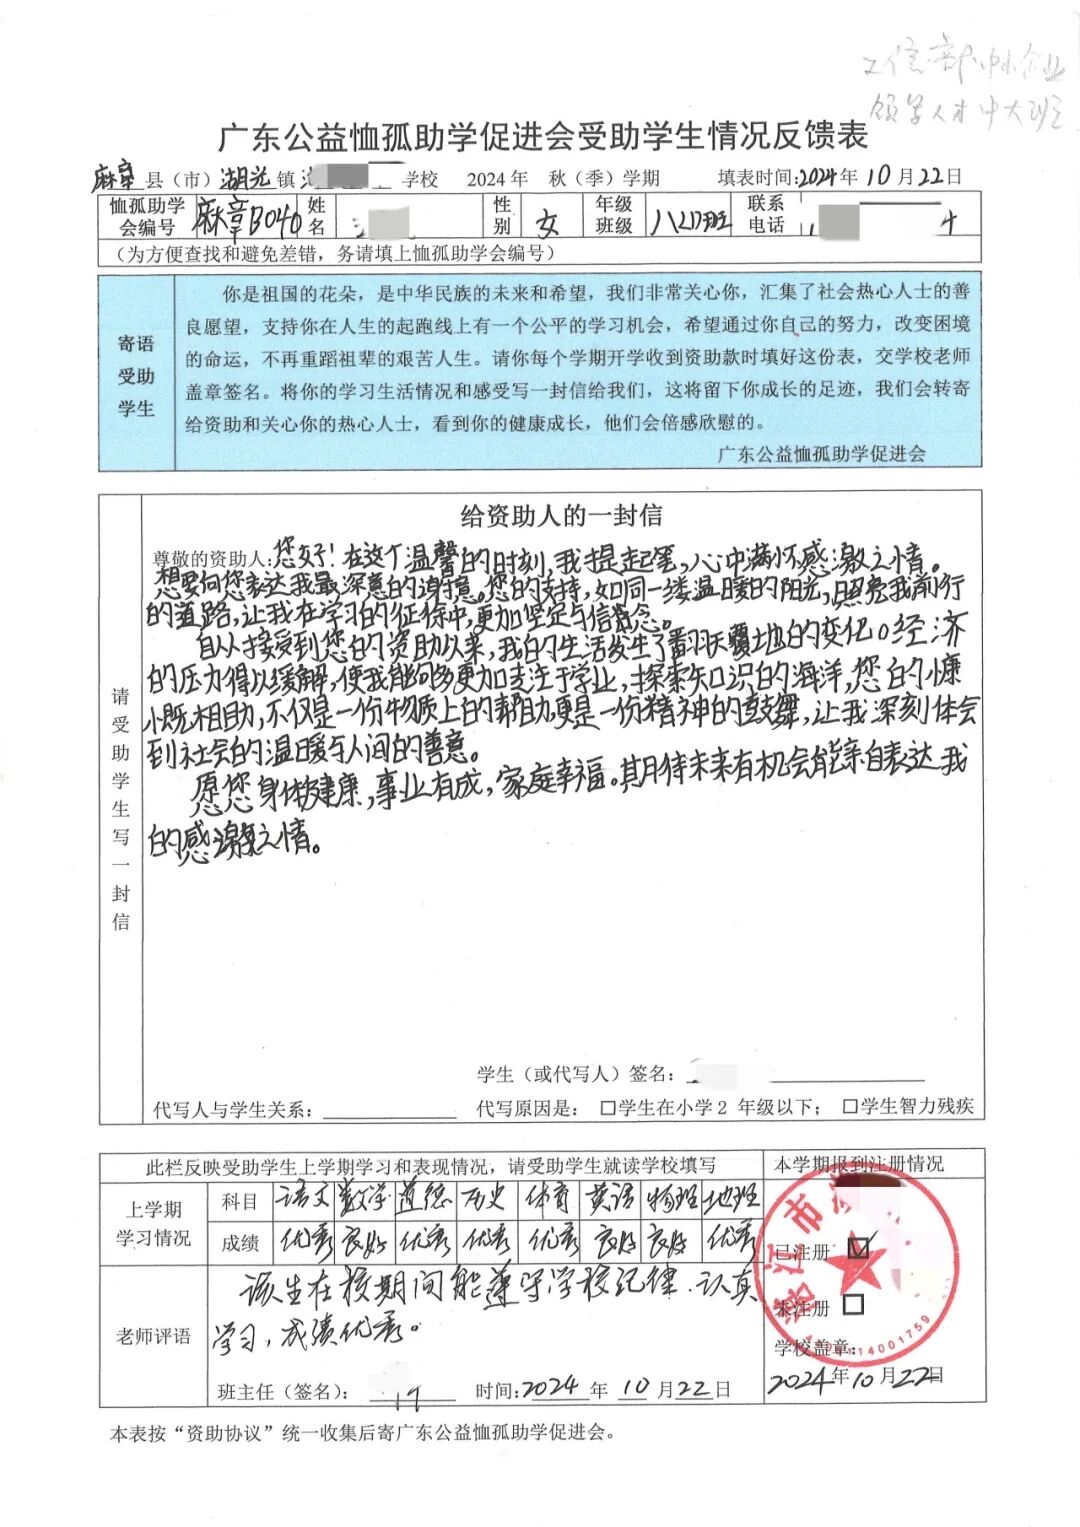 工信部中小企业
领军人才中大班
广东公益恤孤助学促进会受助学生情况反馈表
麻章县（市）湖光镇 学校 2024年 秋（季）学期 填表时间:2024年10月22日
恤孤助学会编号 麻章B040 姓名 性别 女 年级班级 八(2)班 联系电话
（为方便查找和避免差错，务请填上恤孤助学会编号）
寄语受助学生
你是祖国的花朵，是中华民族的未来和希望，我们非常关心你，汇集了社会热心人士的善
良愿望，支持你在人生的起跑线上有一个公平的学习机会，希望通过你自己的努力，改变困境
的命运，不再重蹈祖辈的艰苦人生。请你每个学期开学收到资助款时填好这份表，交学校老师
盖章签名。将你的学习生活情况和感受写一封信给我们，这将留下你成长的足迹，我们会转寄
给资助和关心你的热心人士，看到你的健康成长，他们会倍感欣慰的。
广东公益恤孤助学促进会
请受助学生写一封信
给资助人的一封信
尊敬的资助人:您好！在这个温馨的时刻，我提起笔，心中满怀感激之情。
想要向您表达我最深意的谢意。您的支持，如同一缕温暖的阳光，照亮我前行
的道路，让我在学习的征途中，更加坚定与信念。
自从接受到您的资助以来，我的生活发生了翻天覆地的变化。经济
的压力得以缓解，使我能够更加专注于学业，探索知识的海洋，您的慷
慨相助，不仅是一份物质上的帮助，更是一份精神的鼓舞，让我深刻体会
到社会的温暖与人间的善意。
愿您身体健康，事业有成，家庭幸福。期待未来有机会能亲自表达我
的感激之情。
学生（或代写人）签名：
代写人与学生关系： 代写原因是：□学生在小学2 年级以下；□学生智力残疾
此栏反映受助学生上学期学习和表现情况，请受助学生就读学校填写 本学期报到注册情况
上学期学习情况
科目 语文 数学 道德 历史 体育 英语 物理 地理
成绩 优秀 良好 优秀 优秀 优秀 良好 良好 优秀
已注册 ☑
未注册 □
学校盖章：
2024年10月22日
湛江市
老师评语
该生在校期间能遵守学校纪律，认真
学习，成绩优秀。
班主任（签名）： 时间:2024年10月22日
本表按“资助协议”统一收集后寄广东公益恤孤助学促进会。